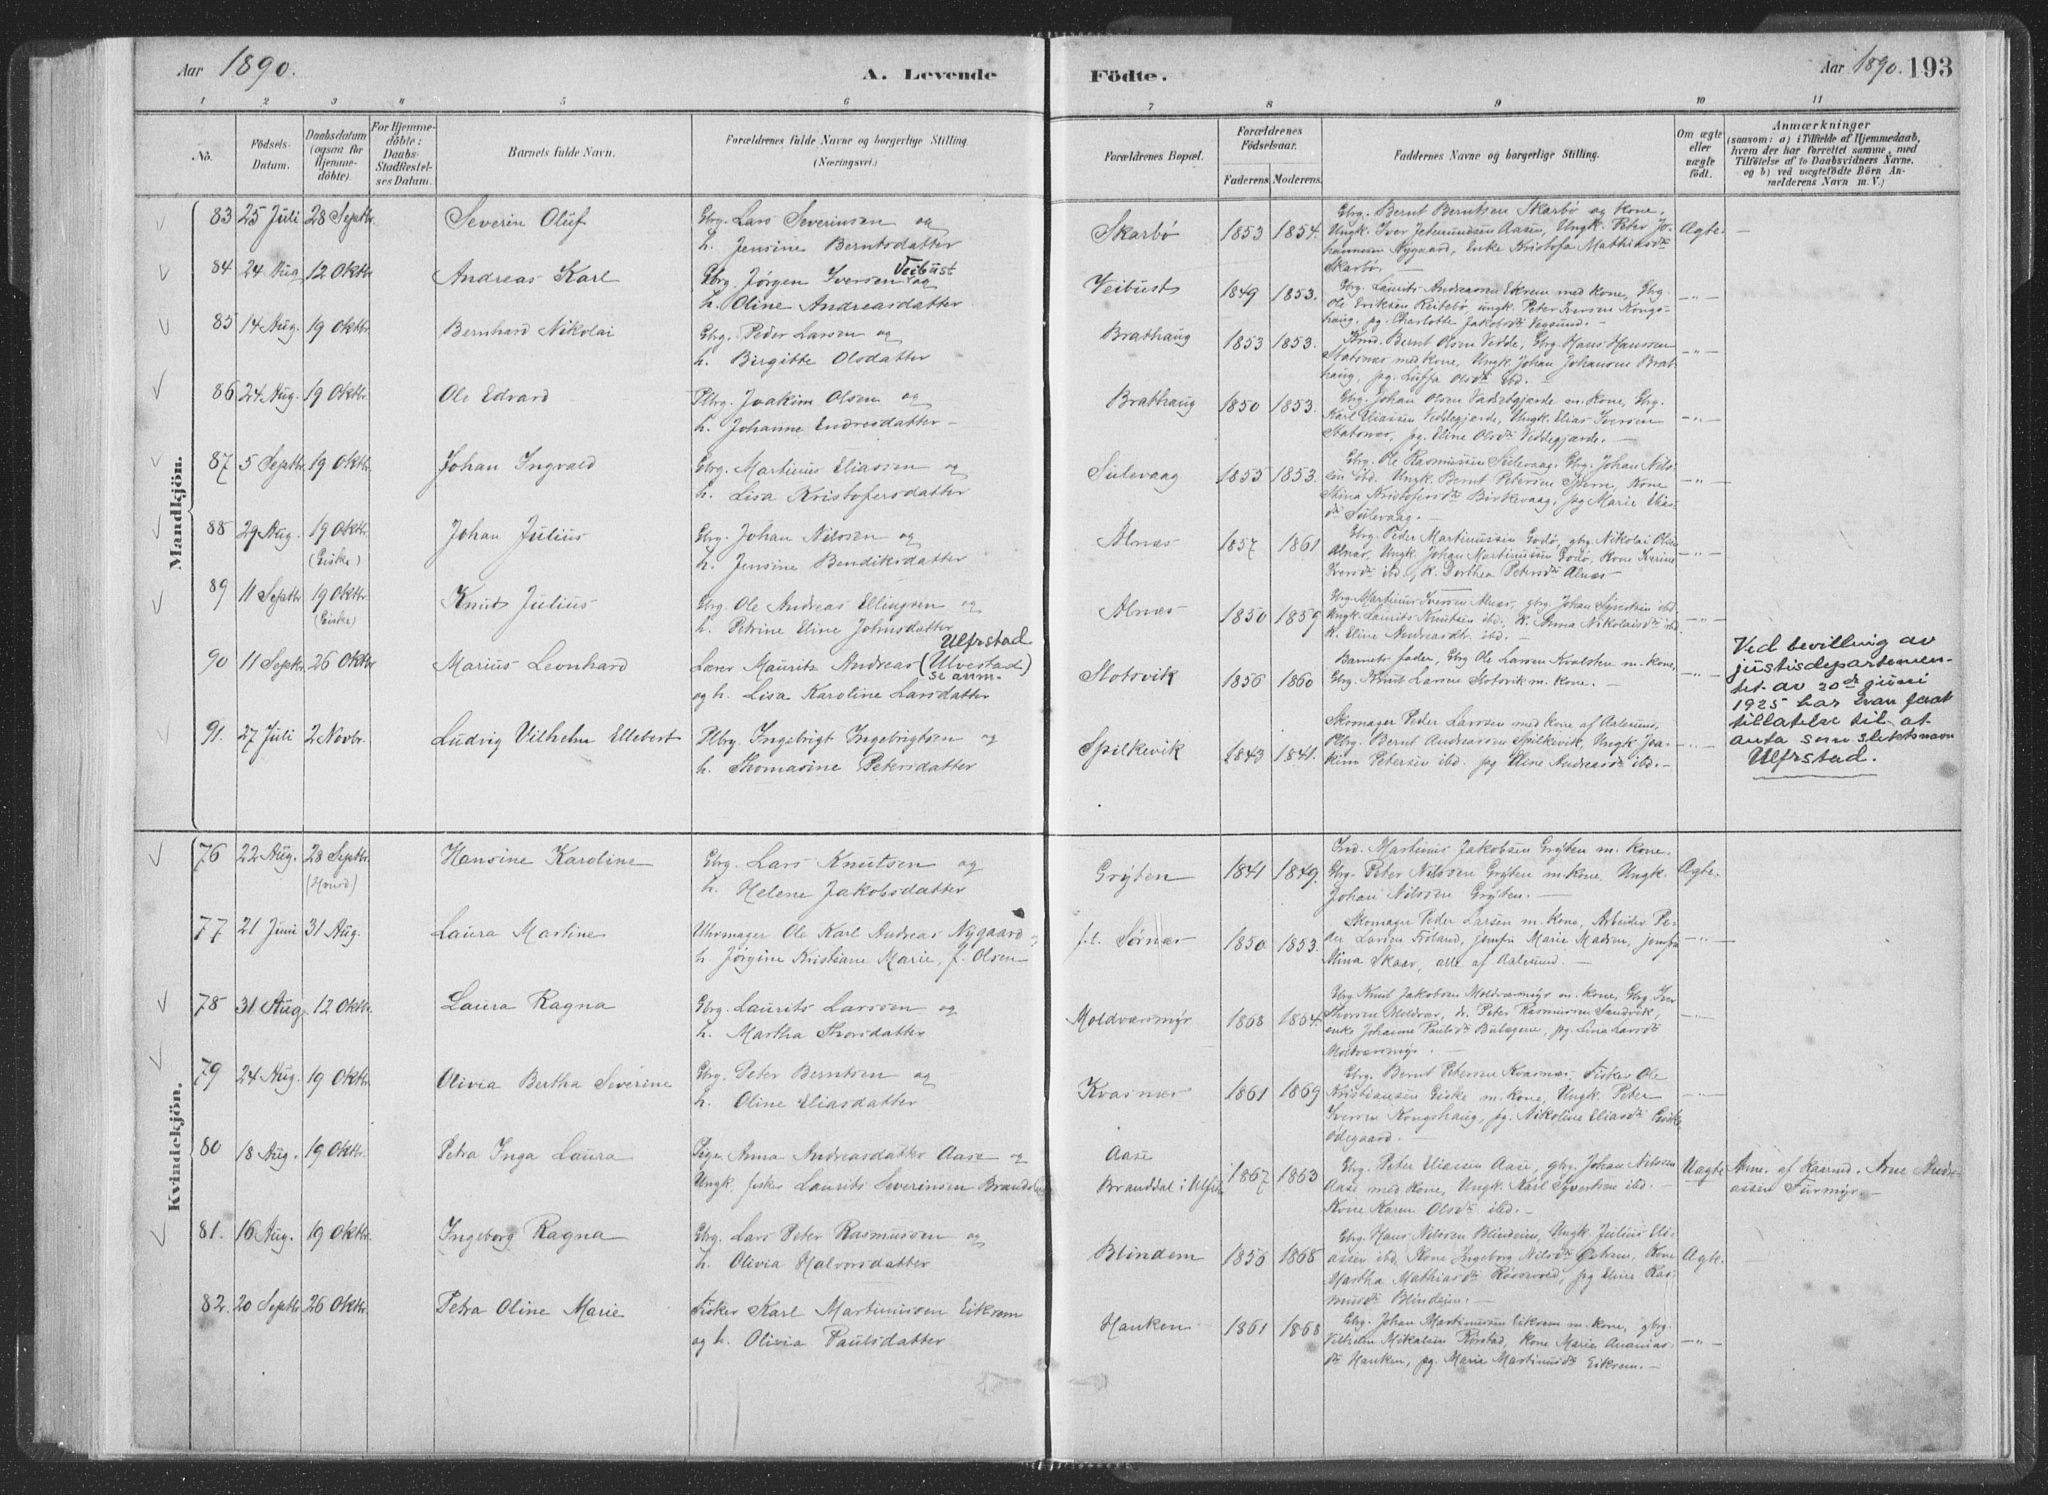 Aar 1890.
A. Levende
Födte.
Aar 1890. 193
1 2 3 4 5 6 7 8 9 10 11
No.
Födsels-Datum.
Daabsdatum (ogsaa for Hjemme-döbte).
For Hjemme-döbte: Daabs-Stadfæstel-ses Datum.
Barnets fulde Navn.
Forældrenes fulde Navne og borgerlige Stilling
(Næringsvei.)
Forældrenes Bopæl.
Forældrenes Födselsaar.
Faderens Moderens.
Faddernes Navne og borgerlige Stilling.
Om ægte eller uægte födt.
Anmærkninger
(saasom: a) i Tilfælde af Hjemmedaab,
hvem der har forrettet samme, med
Tilföielse af to Daabsvidners Navne.
og b) ved uægtefödte Börn An-
mælderens Navn m. V.)
Mandkjön.
83 25 Juli 28 Septbr. Severin Oluf Gbrg. Lars Severinsen og
h. Jensine Berntsdatter
Skarbø 1853 1854.
Gbrg. Bernt Berntsen Skarbø og Kone,
Ungk. Iver Jetmundsen Aasen, Ungk. Peter Jo-
hannesen Nygaard, Enke Kristofa Mathiasdtr
Skarbø. —
Ægte —
84 24 Aug. 12 Oktbr. Andreas Karl Gbrg. Jørgen Iversen Veibust og
h. Oline Andreasdatter
Veibust 1849 1853.
Gbrg. Laurits Andreasen Ekrem med Kone, Gbrg.
Ole Eriksen Reitebø ungk. Peter Iversen Kongs-
haug, pg. Charlotte Jakobsdtr Vegsund. —
— " —
85 14 Aug. 19 Oktbr. Bernhard Nikolai Gbrg. Peder Larsen og
h. Birgitte Olsdatter
Brathaug 1853 1853.
Bernt Olsen Vedde, Gbrg. Hans Hansen
Slatnes med Kone, Ungk. Johan Johansen Brat-
haug, pg. Olsdtr ibd. —
— " —
86 24 Aug. 19 Oktbr. Ole Edvard Plbrg. Joakim Olsen og
h. Johanne Endresdatter —
Brathaug 1850 1853.
Gbrg. Johan Olsen m. Kone, Gbrg.
Karl Eliasen Veddegjerde, Ungk. Elias Iversen
pg. Eline Olsdtr Veddegjerde. —
— " —
87 5 Septbr. 19 Oktbr. Johan Ingvald Gbrg. Martinus Eliassen og
h. Lisa Kristofersdatter
Sulevaag 1855 1853.
Gbrg. Ole Rasmussen Sulevaag, Gbrg. Johan Nils-
sen ibd. Ungk. Bernt Petersen Kone
Stina Kristofersdtr Birkevaag, pg. Marie Elias-
dtr Sulevaag. —
— " —
88 29 Aug. 19 Oktbr. (Giske) Johan Julius Gbrg. Johan Nilssen og
h. Jensine Bendiksdatter
Alnæs 1857 1861
Gbrg. Peder Martinussen Godø, gbrg. Nikolai Olsen
Alnæs, Ungk. Johan Martinussen Godø, Kone
Iversdtr ibd., k. Dorthea Petersdtr Alnæs —
— " —
89 11 Septbr. 19 Oktbr. (Giske) Knut Julius Gbrg. Ole Andreas Ellingsen og
h. Petrine Eline Johnsdatter
Alnæs 1850 1859
Gbrg. Martinus Iversen Alnæs, gbrg. Johan Syvertsen ibd.
Ungk. Laurits Knutsen ibd., k. Anna Nikolaisdtr ibd.
k. Eline Andreasdtr. ibd. —
— " —
90 11 Septbr. 26 Oktbr. Marius Leonhard Lærer Maurits Andreas (Ulvestad) Ulfrstad
se anm.-
og h. Lisa Karoline Larsdatter
Slotsvik 1856 1860
Barnets Fader, Gbrg Ole Larsen Kvalsten m. Kone,
Gbrg. Knut Larsen Slotsvik m. Kone. —
— " —
Ved bevilling av
justisdepartemen-
tet av 20de juni
1925 har han faat
tillatelse til at
anta som slektsnavn
Ulfrstad.
91. 27 Juli 2 Novbr. Ludvig Vilhelm Ellebert Plbrg. Ingebrigt Ingebrigtsen og
h. Thomasine Petersdatter
Spilkevik 1843 1841.
Skomager Peder Larsen med Kone af Aalesund,
Plbrg. Bernt Andreassen Spilkevik, Ungk. Joa-
kim Petersen ibd. pg Eline Andreasdtr ibd. —
— " —
Kvindekjön.
76 22 Aug. 28 Septbr. Hansine Karoline Gbrg. Lars Knutsen og
h. Helene Jakobsdatter
Grÿten 1841 1849.
Ind. Martinus Jakobsen Grÿten m. Kone,
Gbrg. Peter Nilssen Grÿten m. Kone, Ungk.
Johan Nilssen Grÿten. —
Ægte.
77 21 Juni 31 Aug. Laura Martine Uhrmager Ole Karl Andreas Nygaard
h. Jørgine Kristiane Marie, f. Olsen —
f. t. Sørnæs 1850 1853.
Skomager Peder Larsen m. Kone, Arbeider Pe-
der Larsen Frøland, jomfru Marie Madsen, jomfru
Mina Skaar, alle af Aalesund. —
— " —
78 31 Aug. 12 Oktbr. Laura Ragna Gbrg. Laurits Larssen og
h. Martha Thorsdatter
Moldværsmyr 1868 1864.
Gbrg. Knut Jakobsen Moldværsmyr m. Kone, Gbrg. Iver
Thorsen Moldvær, dr. Peter Rasmussen Sandvik,
enke Johanne Paulsdtr pg. Lina Larsdtr
Moldværsmyr. —
— " —
79 24 Aug. 19 Oktbr. Olivia Bertha Severine Gbrg. Peter Berntsen og
h. Oline Eliasdatter
Kvasnæs 1861 1869
Gbrg. Bernt Petersen Kvasnæs, Fisker Ole
Kristiansen Giske m. Kone, Ungk. Peter
Iversen Kongshaug, pg. Nikoline Eliasdtr Giske
Ødegaard. —
— " —
80 18 Aug. 19 Oktbr. Petra Inga Laura Pige Anna Andreasdatter Aase og
Ungk. fisker Laurits Severinsen Branddal
Aase
Branddal i Ulfst. 1867 1863
Gbrg. Peter Eliasen Aase, gbrg. Johan Nilssen
Aase med Kone, Ungk. Karl Syvertsen ibd.
Kone Karen Olsdtr ibd. —
Uægte Anm. af Arne Andre-
assen Furmyr. —
81. 16 Aug. 19 Oktbr. Ingeborg Ragna Gbrg. Lars Peter Rasmussen og
h. Olivia Halvorsdatter
Blindem 1856 1868
Gbrg. Hans Nilssen Blindeim, Ungk. Julius Eli-
assen ibd. Kone Ingeborg Nilsdtr Kone
Martha Mathiasdtr pg. Eline Ras-
musdtr Blindeim. —
Ægte.
82. 20 Septbr. 26 Oktbr. Petra Oline Marie Fisker Karl Martinussen Eikrem
og h. Olivia Paulsdatter
Hanken 1861 1868
Gbrg. Johan Martinussen Eikrem m. Kone, gbrg.
Vilhelm Mikalsen Rørstad, Kone Marie Ananias-
dtr Hanken, pg. Marie Martinusdtr Eikrem. —
— " —